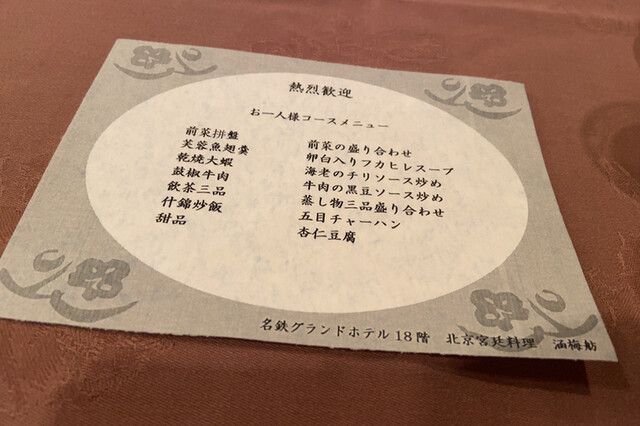 熱烈歓迎
お一人様コースメニュー
前菜拼盤 前菜の盛り合わせ
芙蓉魚翅羹 卵白入りフカヒレスープ
乾焼大蝦 海老のチリソース炒め
鼓椒牛肉 牛肉の黒豆ソース炒め
飲茶三品 蒸し物三品盛り合わせ
什錦炒飯 五目チャーハン
甜品 杏仁豆腐
名鉄グランドホテル18階 北京宮廷料理 涵梅舫